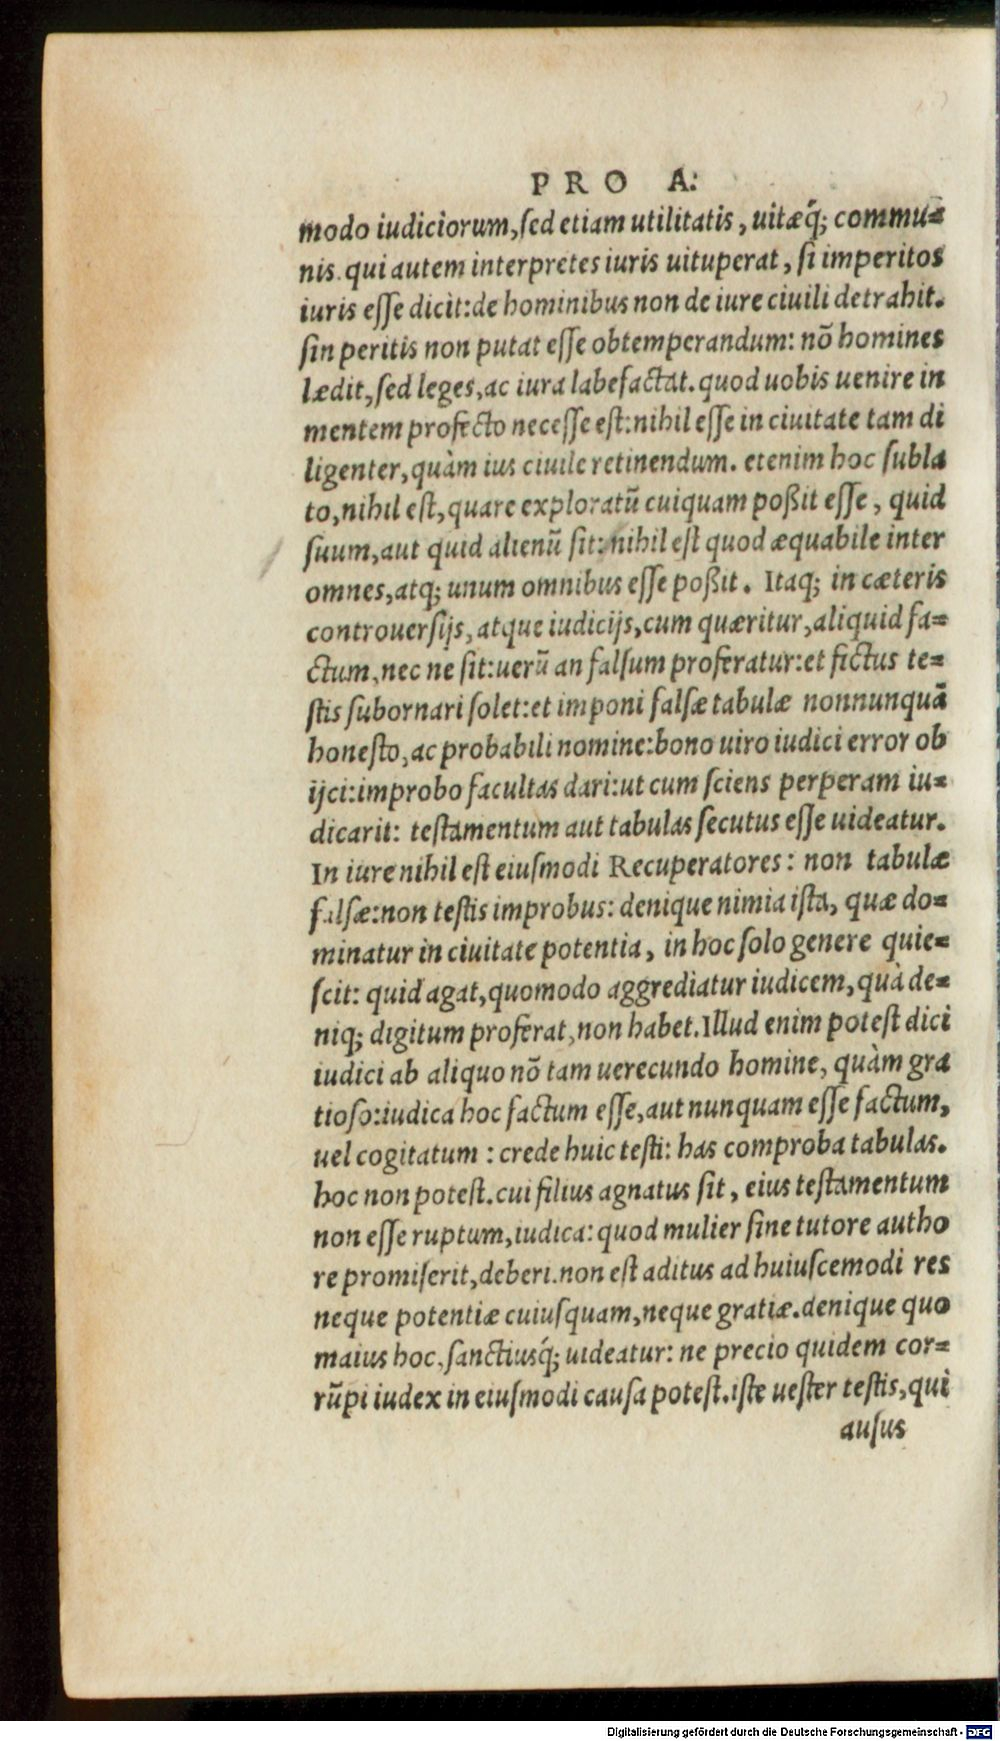 PRO A:
modo iudiciorum,ſed etiam utilitatis, uitæq́; commu=
nis. qui autem interpretes iuris uituperat, ſi imperitos
iuris eſſe dicit: de hominibus non de iure ciuili detrahit.
ſin peritis non putat eſſe obtemperandum: nō homines
lædit,ſed leges,ac iura labefactat.quod uobis uenire in
mentem profecto neceſſe eſt:nihil eſſe in ciuitate tam di
ligenter,quàm ius ciuile retinendum. etenim hoc ſubla
to,nihil eſt,quare exploratū cuiquam poßit eſſe, quid
ſuum,aut quid alienū ſit:nihil eſt quod æquabile inter
omnes,atq; unum omnibus eſſe poßit. Itaq; in cæteris
controuerſijs,atque iudicijs,cum quæritur,aliquid fa=
ctum,nec ne ſit:uerū an falſum proferatur:et fictus te=
ſtis ſubornari ſolet:et imponi falſæ tabulæ nonnunquā
honeſto,ac probabili nomine:bono uiro iudici error ob
ijci:improbo facultas dari:ut cum ſciens perperam iu=
dicarit: teſtamentum aut tabulas ſecutus eſſe uideatur.
In iure nihil eſt eiuſmodi Recuperatores: non tabulæ
falſæ:non teſtis improbus: denique nimia iſta, quæ do=
minatur in ciuitate potentia, in hoc ſolo genere quie=
ſcit: quid agat,quomodo aggrediatur iudicem,quà de=
niq; digitum proferat,non habet.Illud enim poteſt dici
iudici ab aliquo nō tam uerecundo homine, quàm gra
tioſo:iudica hoc factum eſſe,aut nunquam eſſe factum,
uel cogitatum : crede huic teſti: has comproba tabulas.
hoc non poteſt.cui filius agnatus ſit, eius teſtamentum
non eſſe ruptum,iudica: quod mulier ſine tutore autho
re promiſerit,deberi.non eſt aditus ad huiuſcemodi res
neque potentiæ cuiuſquam,neque gratiæ.denique quo
maius hoc,ſanctiusq́; uideatur: ne precio quidem cor=
rūpi iudex in eiuſmodi cauſa poteſt.iſte ueſter teſtis,qui
auſus
Digitalisierung gefördert durch die Deutsche Forschungsgemeinschaft - DFG